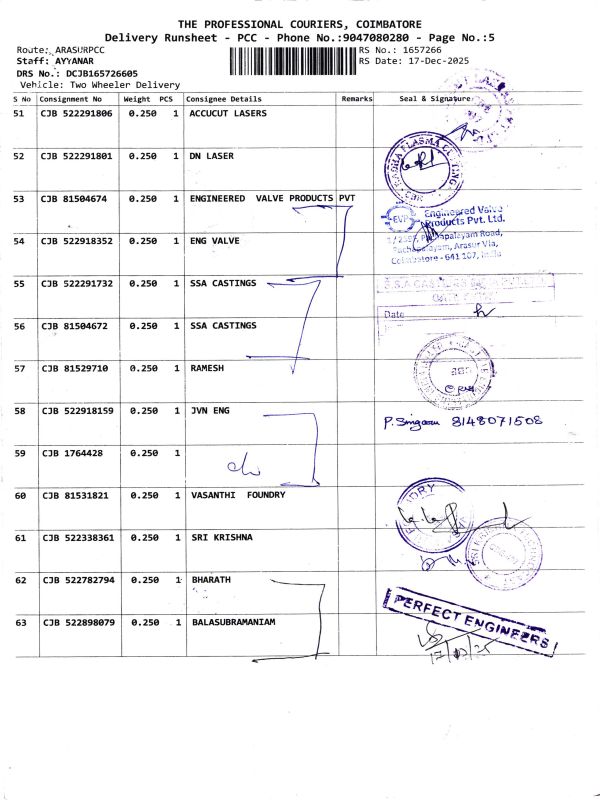 THE PROFESSIONAL COURIERS, COIMBATORE
Delivery Runsheet - PCC - Phone No.:9047080280 - Page No.:5
Route: ARASURPCC RS No.: 1657266
Staff: AYYANAR RS Date: 17-Dec-2025
DRS No.: DCJB165726605
Vehicle: Two Wheeler Delivery
S No Consignment No Weight PCS Consignee Details Remarks Seal & Signature
51 CJB 522291806 0.250 1 ACCUCUT LASERS
52 CJB 522291801 0.250 1 DN LASER
53 CJB 81504674 0.250 1 ENGINEERED VALVE PRODUCTS PVT
EVP Engineered Valve
Products Pvt. Ltd.
54 CJB 522918352 0.250 1 ENG VALVE
Road,
Arasur Via,
Coimbatore - 641 107, India
55 CJB 522291732 0.250 1 SSA CASTINGS
56 CJB 81504672 0.250 1 SSA CASTINGS
Date
57 CJB 81529710 0.250 1 RAMESH
58 CJB 522918159 0.250 1 JVN ENG
8148071508
59 CJB 1764428 0.250 1
60 CJB 81531821 0.250 1 VASANTHI FOUNDRY
61 CJB 522338361 0.250 1 SRI KRISHNA
62 CJB 522782794 0.250 1 BHARATH
PERFECT ENGINEERS
63 CJB 522898079 0.250 1 BALASUBRAMANIAM